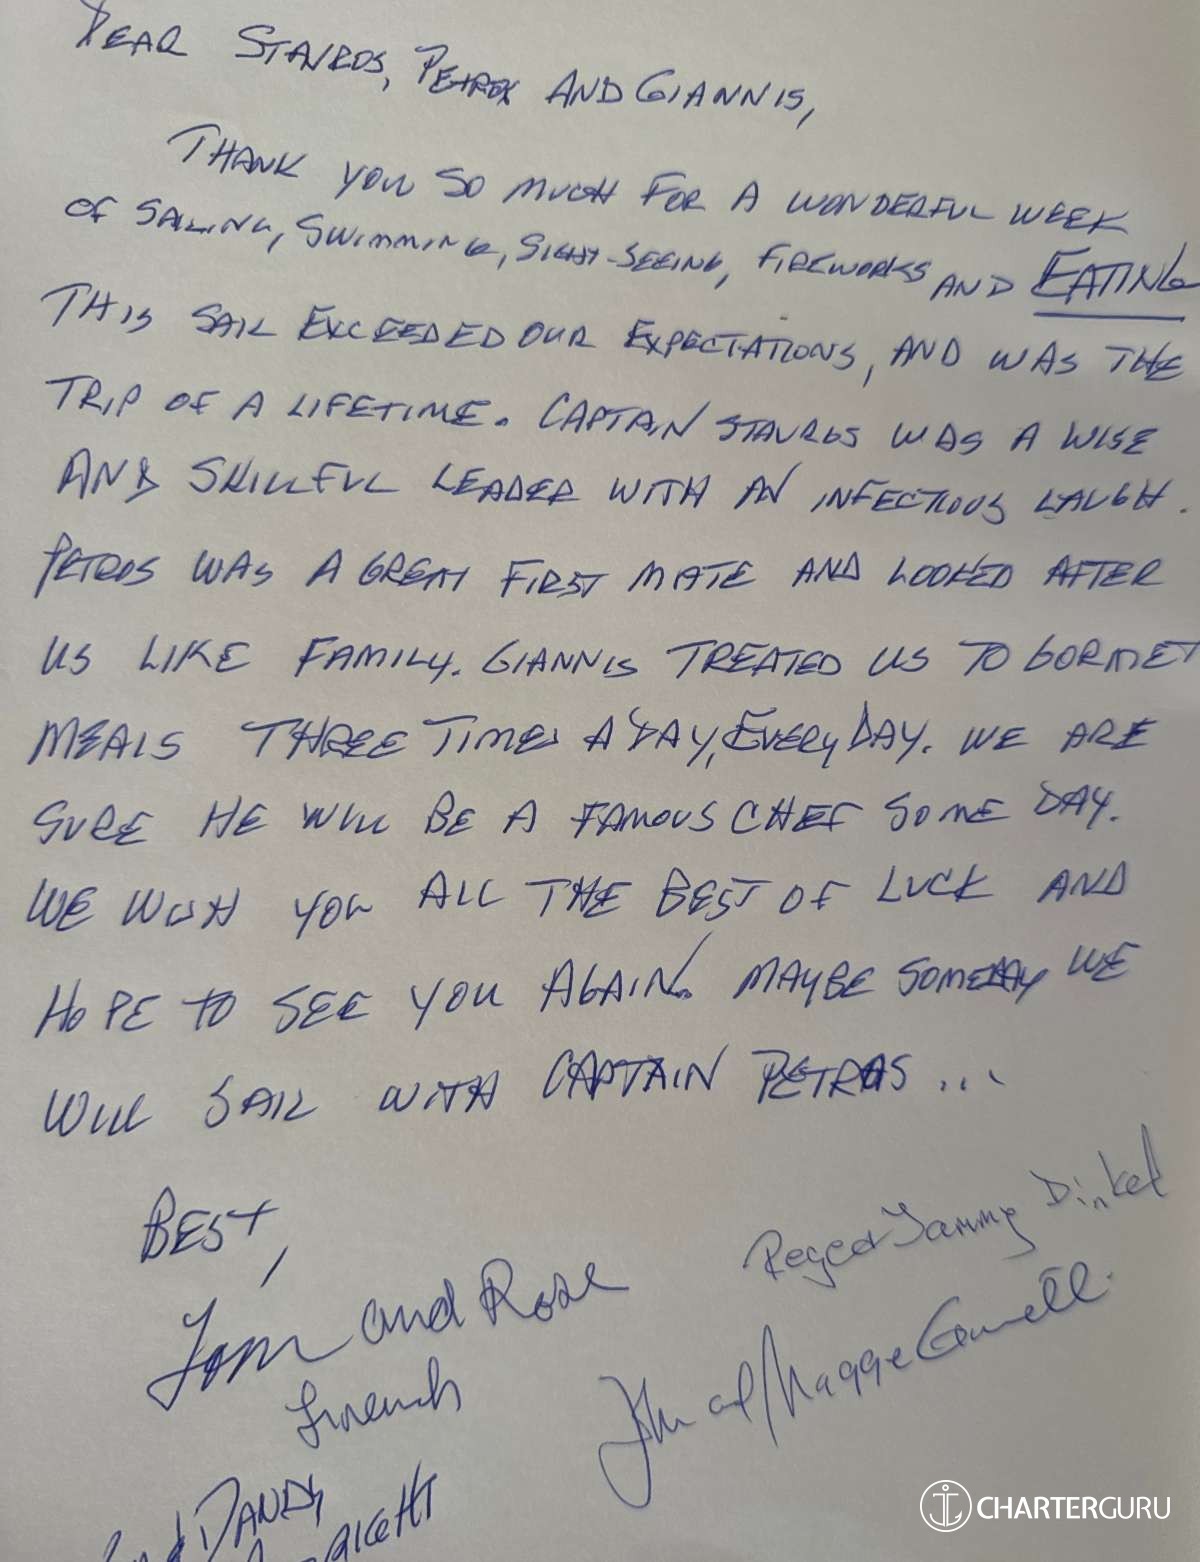 DEAR STAVROS, PETROS AND GIANNIS,
THANK YOU SO MUCH FOR A WONDERFUL WEEK
OF SAILING, SWIMMING, SIGHT-SEEING, FIREWORKS AND EATING
THIS SAIL EXCEEDED OUR EXPECTATIONS, AND WAS THE
TRIP OF A LIFETIME. CAPTAIN STAVROS WAS A WISE
AND SKILLFUL LEADER WITH AN INFECTIOUS LAUGH.
PETROS WAS A GREAT FIRST MATE AND LOOKED AFTER
US LIKE FAMILY. GIANNIS TREATED US TO GORMET
MEALS THREE TIMES A DAY, EVERY DAY. WE ARE
SURE HE WILL BE A FAMOUS CHEF SOME DAY.
WE WISH YOU ALL THE BEST OF LUCK AND
HOPE TO SEE YOU AGAIN. MAYBE SOMEDAY WE
WILL SAIL WITH CAPTAIN PETRAS ...
BEST,
Tom and Rose
Roger Tammy Dinkel
John and Maggie
CHARTERGURU